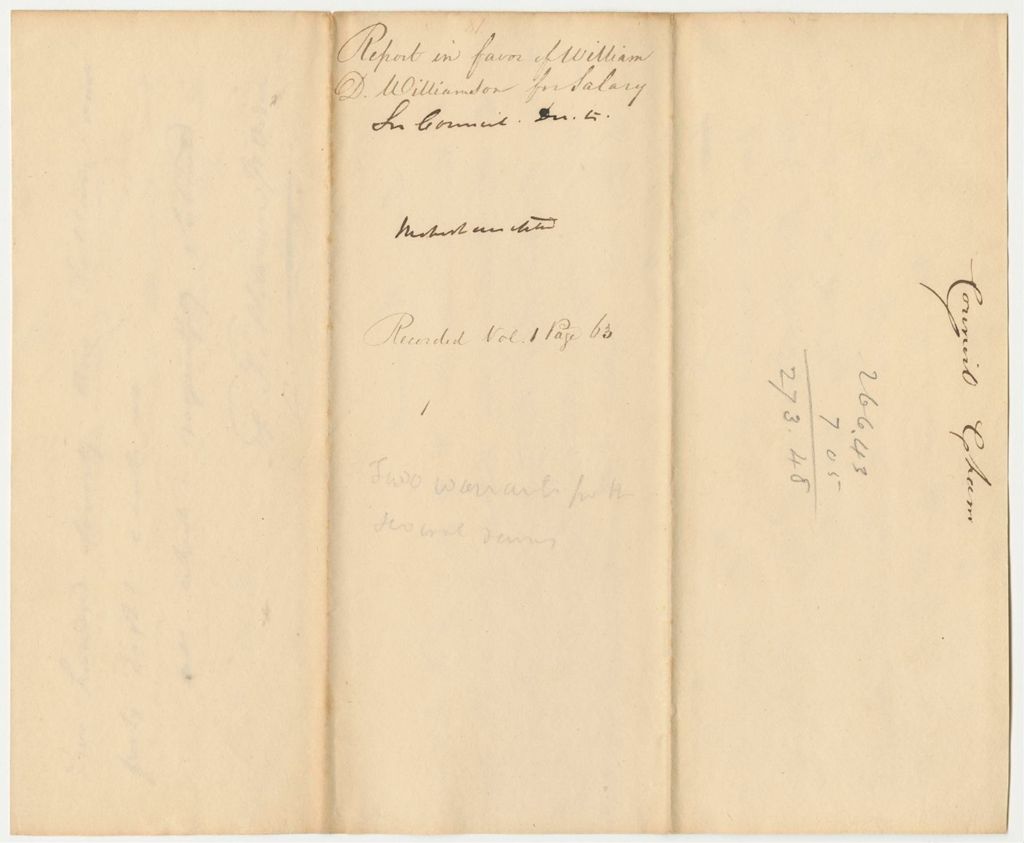 Report in favor of William
D. Williamson for Salary
In Council.
Recorded Vol. 1 Page 63
Two warrants for the
several sums
Council Cham
266.43
7 05
273.48